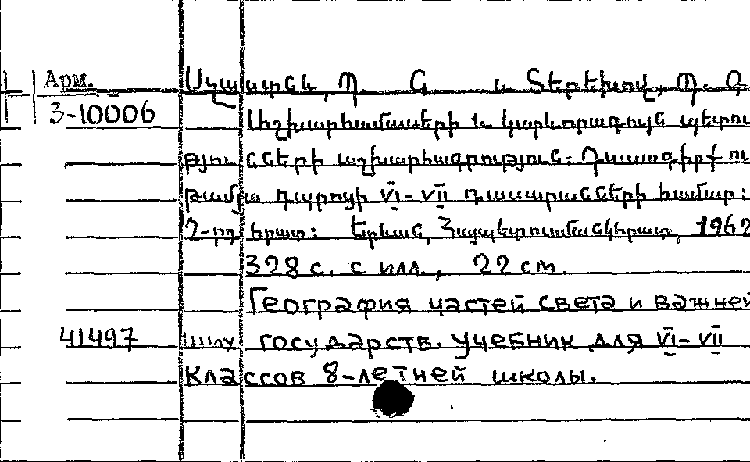 Арм.
3-10006
Պ. Գ. և Տերեխով, Պ. Գ.
Աշխարհամասերի և կարևորագույն պետու
թյունների աշխարհագրություն: Դասագիրք ու
թամյա դպրոցի VI-VII դասարանների համար:
2-րդ հրատ: Երևան, Հայպետուսմանկհրատ, 1962
328 с. с илл., 22 см.
География частей света и важней
41497 ших государств. Учебник для VI-VII
классов 8-летней школы.